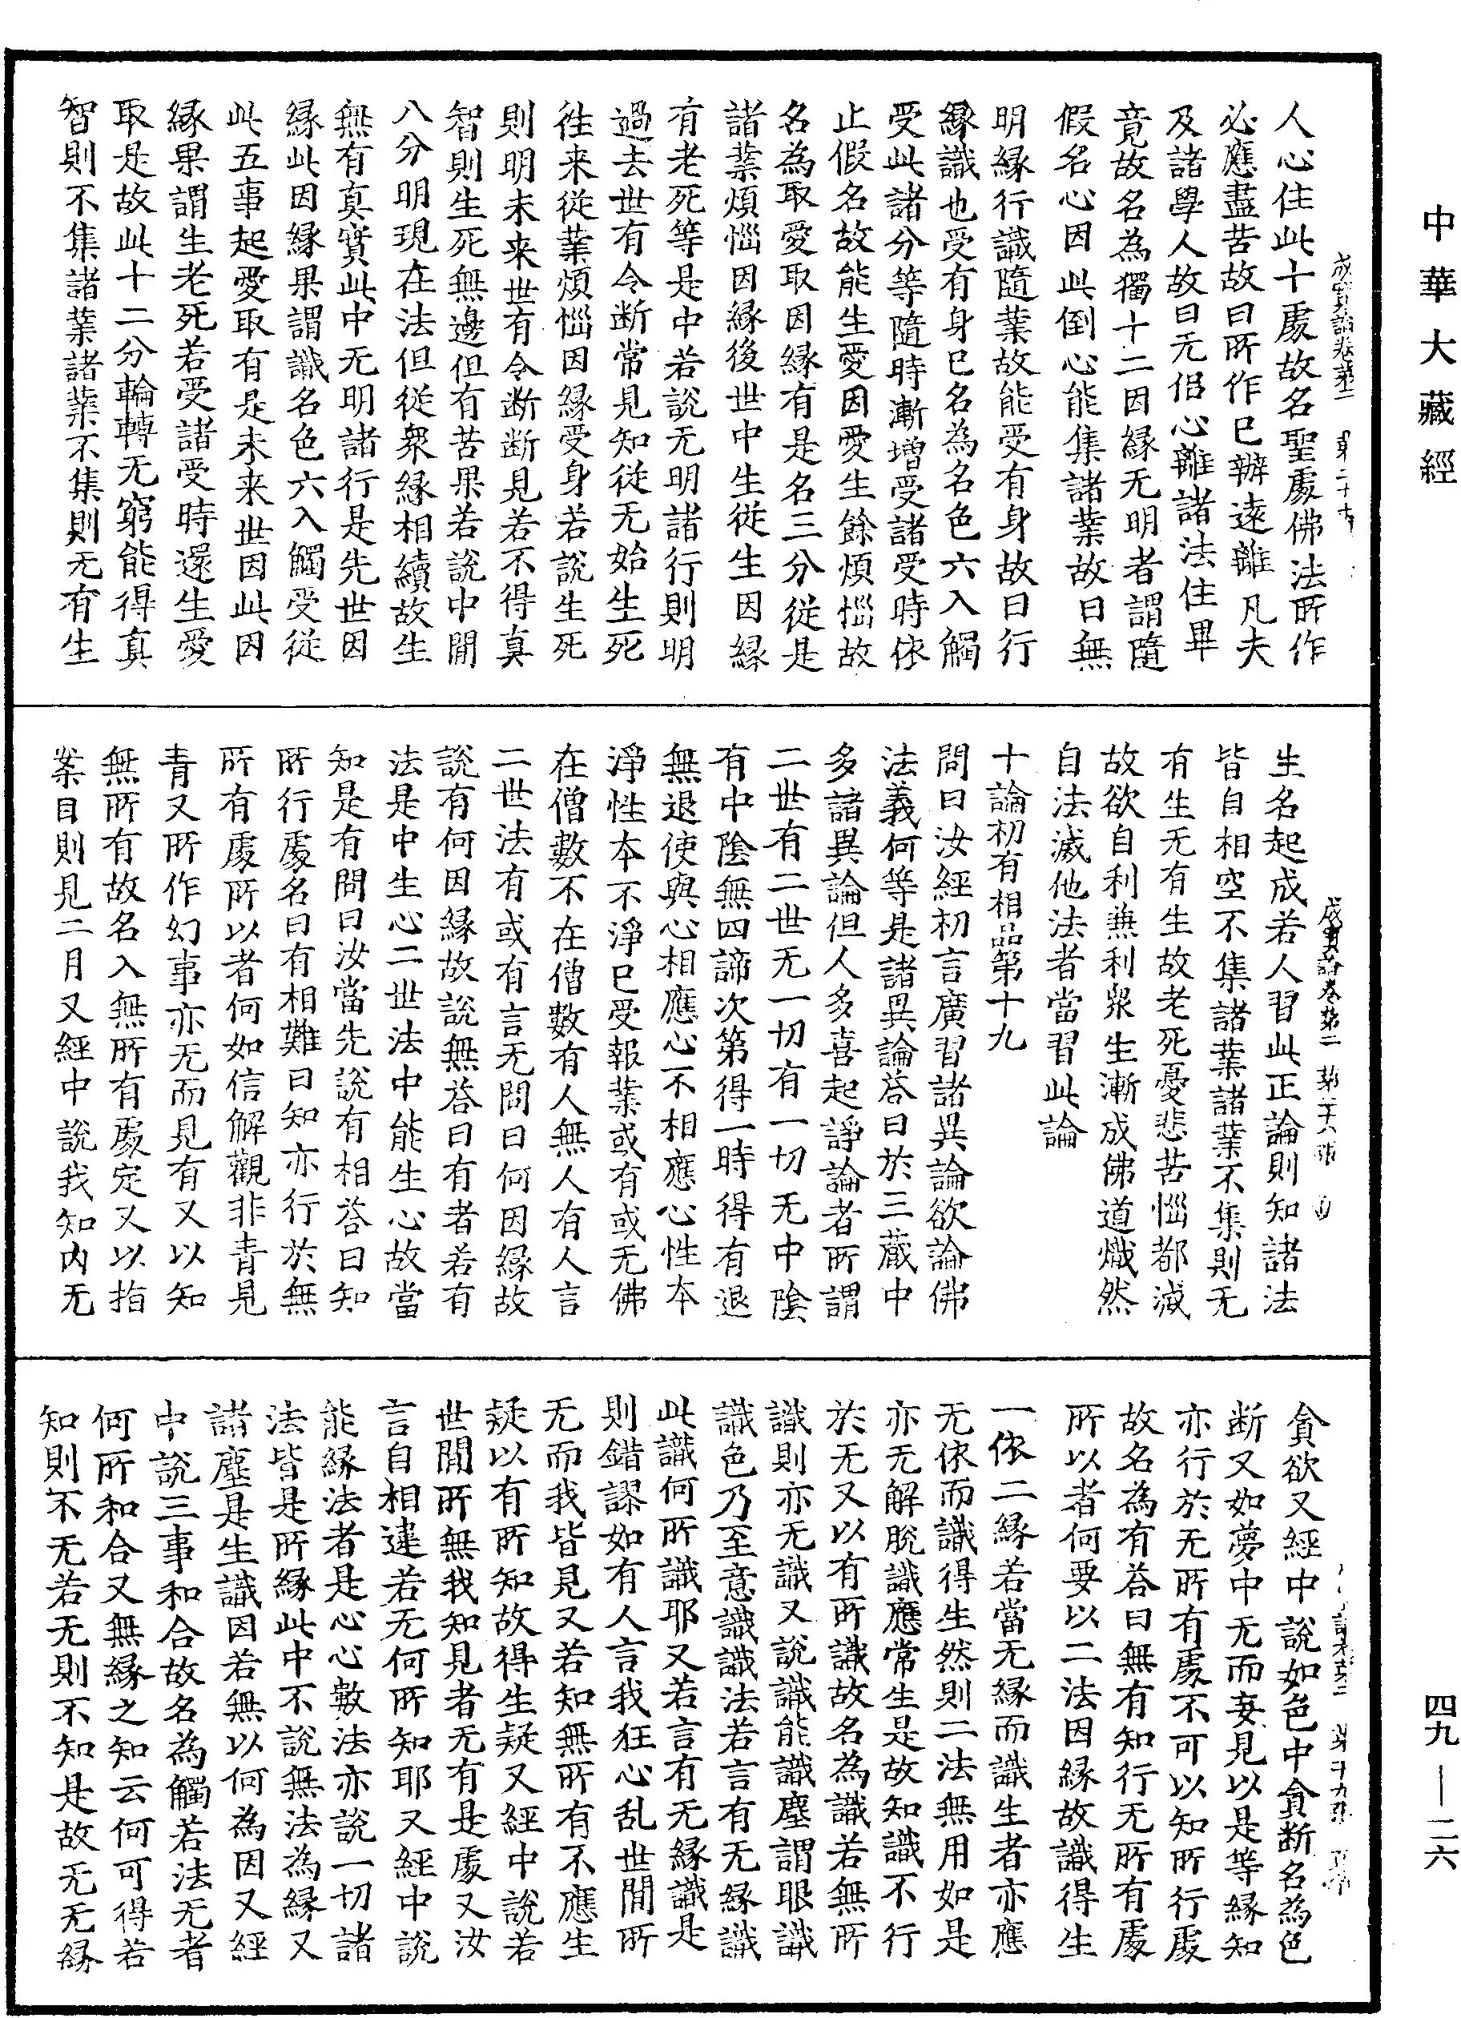 中華大藏經
人心住此十處故名聖處佛法所作
必應盡苦故曰所作已辦遠離凡夫
及諸學人故曰无侣心離諸法住畢
竟故名為獨十二因緣无明者謂隨
假名心因此倒心能集諸業故曰無
明緣行識隨業故能受有身故曰行
緣識也受有身已名為名色六入觸
受此諸分等隨時漸增受諸受時依
止假名故能生愛因愛生餘煩惱故
名為取愛取因緣有是名三分從是
諸業煩惱因緣後世中生從生因緣
有老死等是中若說无明諸行則明
過去世有令断常見知從无始生死
徃来從業煩惱因緣受身若說生死
則明未来世有令断断見若不得真
智則生死無邊但有苦果若說中間
八分明現在法但從衆緣相續故生
無有真實此中无明諸行是先世因
緣此因緣果謂識名色六入觸受從
此五事起愛取有是未来世因此因
緣果謂生老死若受諸受時還生愛
取是故此十二分輪轉无窮能得真
智則不集諸業諸業不集則无有生
生名起成若人習此正論則知諸法
皆自相空不集諸業諸業不集則无
有生无有生故老死憂悲苦惱都滅
故欲自利兼利衆生漸成佛道熾然
自法滅他法者當習此論
十論初有相品第十九
問曰汝經初言廣習諸異論欲論佛
法義何等是諸異論荅曰於三藏中
多諸異論但人多喜起諍論者所謂
二世有二世无一切有一切无中陰
有中陰無四諦次第得一時得有退
無退使與心相應心不相應心性本
淨性本不淨已受報業或有或无佛
在僧數不在僧數有人無人有人言
二世法有或有言无問曰何因緣故
說有何因緣故說無荅曰有者若有
法是中生心二世法中能生心故當
知是有問曰汝當先說有相荅曰知
所行處名曰有相難曰知亦行於無
所有處所以者何如信解觀非青見
青又所作幻事亦无而見有又以知
無所有故名入無所有處定又以指
案目則見二月又經中說我知内无
貪欲又經中說如色中貪断名為色
断又如夢中无而妄見以是等緣知
亦行於无所有處不可以知所行處
故名為有荅曰無有知行无所有處
所以者何要以二法因緣故識得生
一依二緣若當无緣而識生者亦應
无依而識得生然則二法無用如是
亦无解脫識應常生是故知識不行
於无又以有所識故名為識若無所
識則亦无識又說識能識塵謂眼識
識色乃至意識識法若言有无緣識
此識何所識耶又若言有无緣識是
則錯謬如有人言我狂心乱世間所
无而我皆見又若知無所有不應生
疑以有所知故得生疑又經中說若
世間所無我知見者无有是處又汝
言自相違若无何所知耶又經中說
能緣法者是心心數法亦說一切諸
法皆是所緣此中不說無法為緣又
諸塵是生識因若無以何為因又經
中說三事和合故名為觸若法无者
何所和合又無緣之知云何可得若
知則不无若无則不知是故无无緣
四九—二六